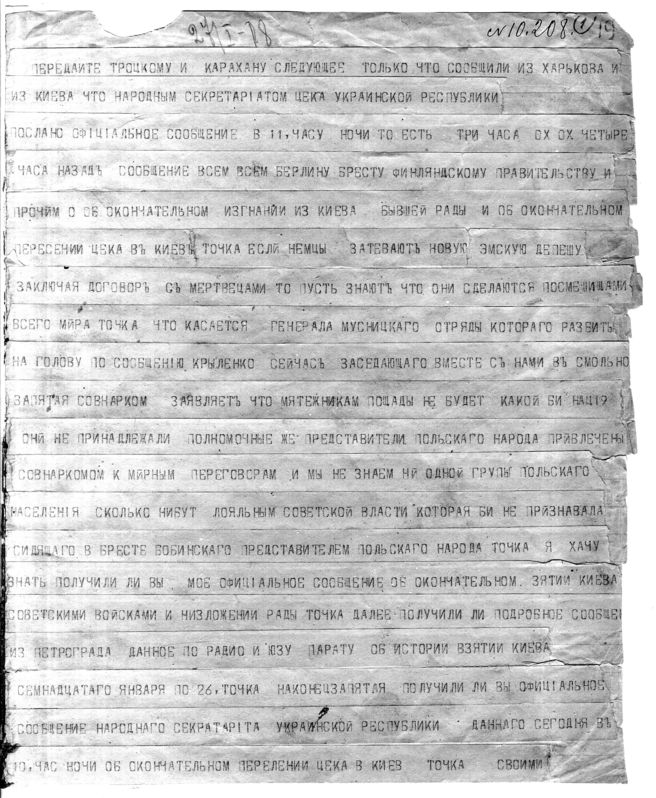 27/I-18
№10.208. ① 19
ПЕРЕДАЙТЕ ТРОЦКОМУ И КАРАХАНУ СЛЕДУЮЩЕЕ ТОЛЬКО ЧТО СООБЩИЛИ ИЗ ХАРЬКОВА И
ИЗ КИЕВА ЧТО НАРОДНЫМ СЕКРЕТАРІАТОМ ЦЕКА УКРАИНСКОЙ РЕСПУБЛИКИ
ПОСЛАНО ОФІЦІАЛЬНОЕ СООБЩЕНИЕ В 11, ЧАСУ НОЧИ ТО ЕСТЬ ТРИ ЧАСА ОХ ОХ ЧЕТЫРЕ
ЧАСА НАЗАДЪ СООБЩЕНИЕ ВСЕМ ВСЕМ БЕРЛИНУ БРЕСТУ ФИНЛЯНДСКОМУ ПРАВИТЕЛЬСТВУ И
ПРОЧЙМ О ОБ ОКОНЧАТЕЛЬНОМ ИЗГНАНЙИ ИЗ КИЕВА БЫВШЕЙ РАДЫ И ОБ ОКОНЧАТЕЛЬНОМ
ПЕРЕСЕНИИ ЦЕКА ВЪ КИЕВЪ ТОЧКА ЕСЛЙ НЕМЦЫ ЗАТЕВАЮТЪ НОВУЮ ЭМСКУЮ ДЕПЕШУ
ЗАКЛЮЧАЯ ДОГОВОРЪ СЪ МЕРТВЕЦАМИ ТО ПУСТЬ ЗНАЮТЪ ЧТО ОНИ СДЕЛАЮТСЯ ПОСМЕШИЩАМИ
ВСЕГО МЙРА ТОЧКА ЧТО КАСАЕТСЯ ГЕНЕРАЛА МУСНИЦКАГО ОТРЯДЫ КОТОРАГО РАЗБИТЫ
НА ГОЛОВУ ПО СООБЩЕНІЮ КРЫЛЕНКО СЕЙЧАСЪ ЗАСЕДАЮЩАГО ВМЕСТЕ СЪ НАМИ ВЪ СМОЛЬНО
ЗАПЯТАЯ СОВНАРКОМ ЗАЯВЛЯЕТЪ ЧТО МЯТЕЖНИКАМ ПОЩАДЫ НЕ БУДЕТ КАКОЙ БИ НАЦІЙ
ОНЙ НЕ ПРИНАДЛЕЖАЛИ ПОЛНОМОЧНЫЕ ЖЕ ПРЕДСТАВИТЕЛИ ПОЛЬСКАГО НАРОДА ПРЙВЛЕЧЕНЫ
СОВНАРКОМОМ К МЙРНЫМ ПЕРЕГОВОРАМ И МЫ НЕ ЗНАЕМ НЙ ОДНОЙ ГРУПЫ ПОЛЬСКАГО
НАСЕЛЕНІЯ СКОЛЬКО НИБУТ ЛОЯЛЬНЫМ СОВЕТСКОЙ ВЛАСТИ КОТОРАЯ БИ НЕ ПРЙЗНАВАЛА
СИДЯЩАГО В БРЕСТЕ БОБИНСКАГО ПРЕДСТАВИТЕЛЕМ ПОЛЬСКАГО НАРОДА ТОЧКА Я ХАЧУ
ЗНАТЬ ПОЛУЧИЛИ ЛИ ВЫ МОЕ ОФИЦІАЛЬНОЕ СООБЩЕНИЕ ОБ ОКОНЧАТЕЛЬНОМ ЗЯТИИ КИЕВА
СОВЕТСКИМИ ВОЙСКАМИ И НИЗЛОЖЕНИИ РАДЫ ТОЧКА ДАЛЕЕ ПОЛУЧИЛИ ЛИ ПОДРОБНОЕ СООБЩЕН
ИЗ ПЕТРОГРАДА ДАННОЕ ПО РАДИО И ЮЗУ ПАРАТУ ОБ ИСТОРИИ ВЗЯТИИ КИЕВА
СЕМНАДЦАТАГО ЯНВАРЯ ПО 26, ТОЧКА НАКОНЕЦЗАПЯТАЯ ПОЛУЧИЛИ ЛИ ВЫ ОФИЦІАЛЬНОЕ
СООБЩЕНИЕ НАРОДНАГО СЕКРАТАРІТА УКРАЙНСКОЙ РЕСПУБЛИКИ ДАННАГО СЕГОДНЯ ВЪ
10, ЧАС НОЧИ ОБ ОКОНЧАТЕЛЬНОМ ПЕРЕЛЕНИИ ЦЕКА В КИЕВ ТОЧКА СВОИМИ